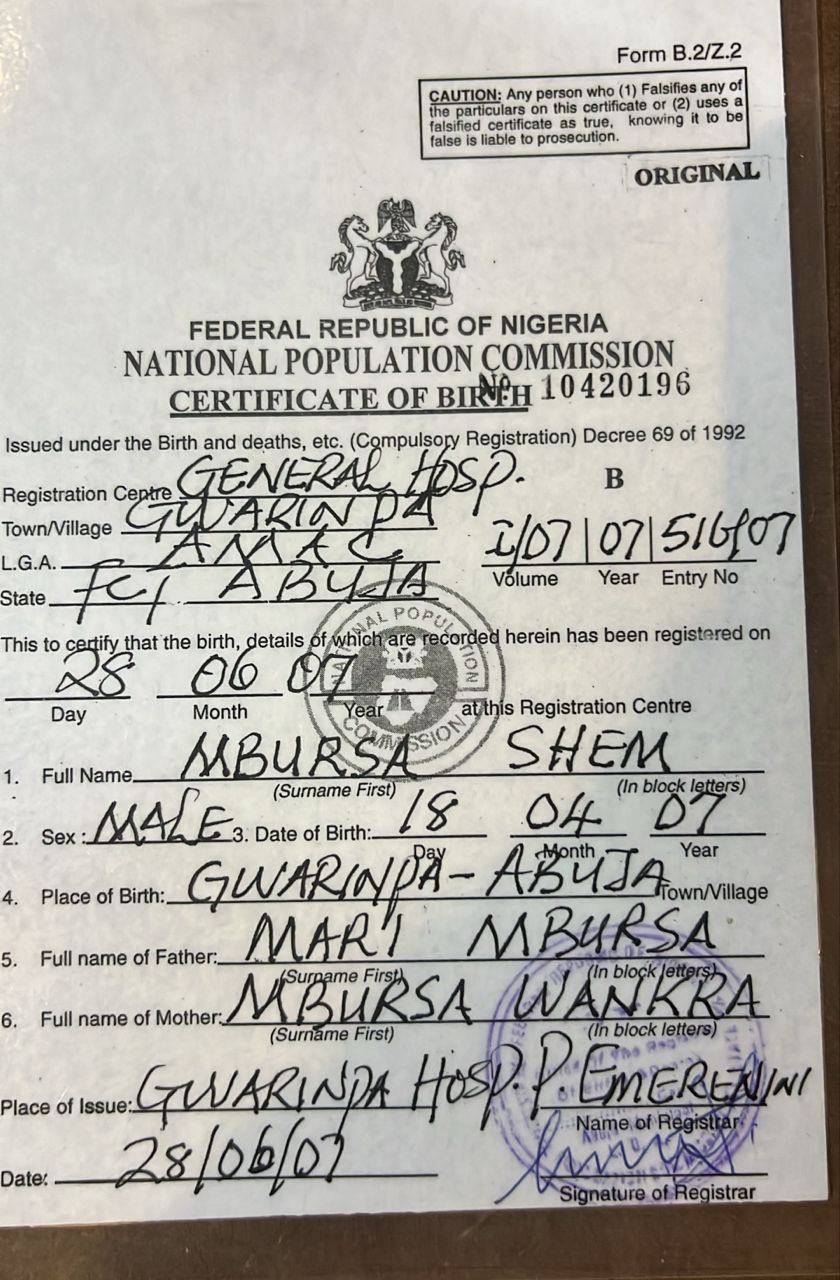 Form B.2/Z.2
CAUTION: Any person who (1) Falsifies any of
the particulars on this certificate or (2) uses a
falsified certificate as true, knowing it to be
false is liable to prosecution.
ORIGINAL
FEDERAL REPUBLIC OF NIGERIA
NATIONAL POPULATION COMMISSION
CERTIFICATE OF BIRTH No. 10420196
Issued under the Birth and deaths, etc. (Compulsory Registration) Decree 69 of 1992
Registration Centre GENERAL HOSP. B
Town/Village GWARINPA
L.G.A. AMAC I/07 | 07 | 516/07
Volume Year Entry No
State FCT ABUJA
NATIONAL POPULATION COMMISSION
This to certify that the birth, details of which are recorded herein has been registered on
28 06 07
Day Month Year at this Registration Centre
1. Full Name MBURSA SHEM
(Surname First) (In block letters)
2. Sex : MALE 3. Date of Birth: 18 04 07
Day Month Year
4. Place of Birth: GWARINPA - ABUJA Town/Village
5. Full name of Father: MARI MBURSA
(Surname First) (In block letters)
6. Full name of Mother: MBURSA WANKRA
(Surname First) (In block letters)
Place of Issue: GWARINPA HOSP. P. EMERENINI
Name of Registrar
Date: 28/06/07
Signature of Registrar